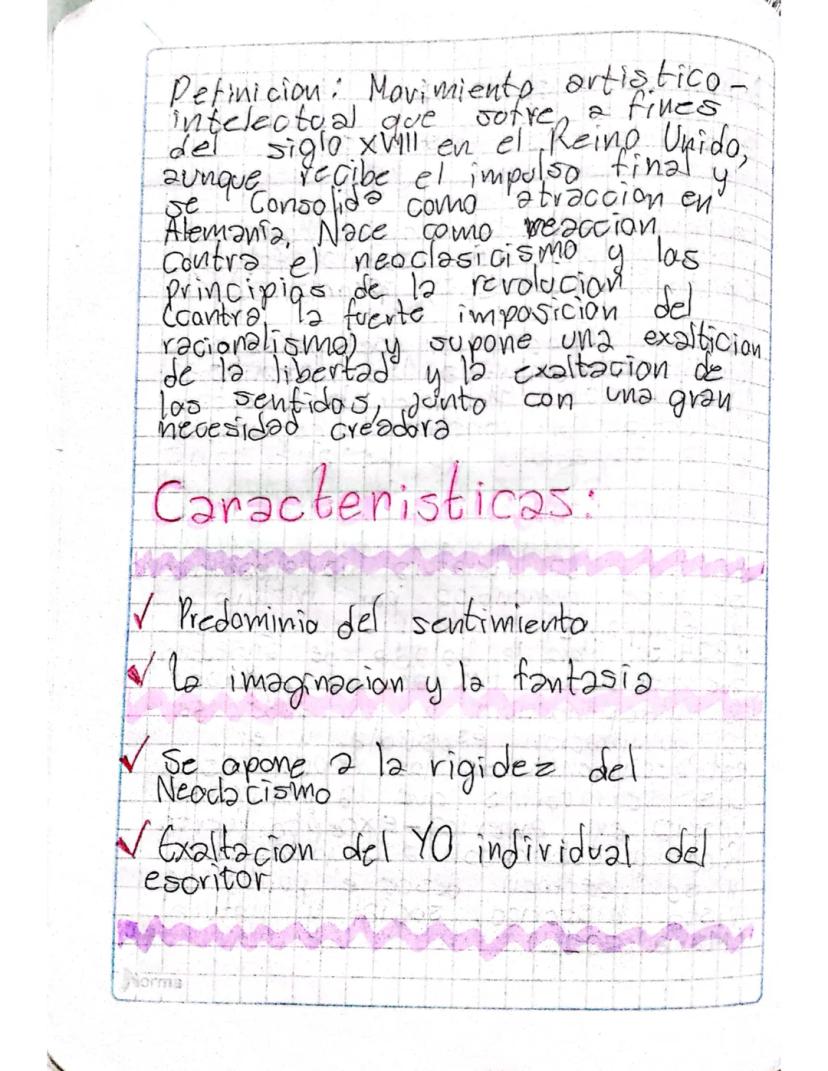 Definicion: Movimiento artistico-
intelectual que sofre a fines
del siglo XVIII en el Reino Unido,
aunque recibe el impulso final y
se Consolida como atraccion en
Alemania. Nace como reaccion
Contra el neoclasicismo y las
principios de la revolucion
(contra la fuerte imposicion del
racionalismo) y supone una exalticion
de la libertad y la exaltacion de
los sentidos, junto con una gran
necesidad creadora
Caracteristicas:
✓ Predominio del sentimiento
✓ La imaginacion y la fantasia
✓ Se opone a la rigidez del
Neoclacismo
✓ Exaltacion del YO individual del
escritor
Norma